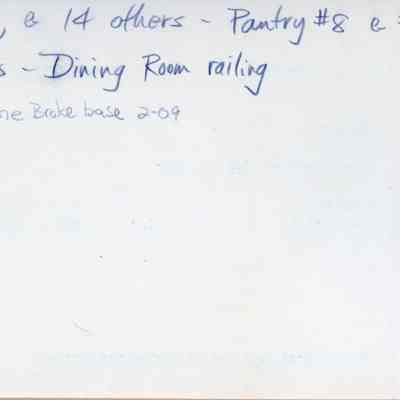 , & 14 others - Pantry #8 e
s - Dining Room railing
ne Broke base 2-09